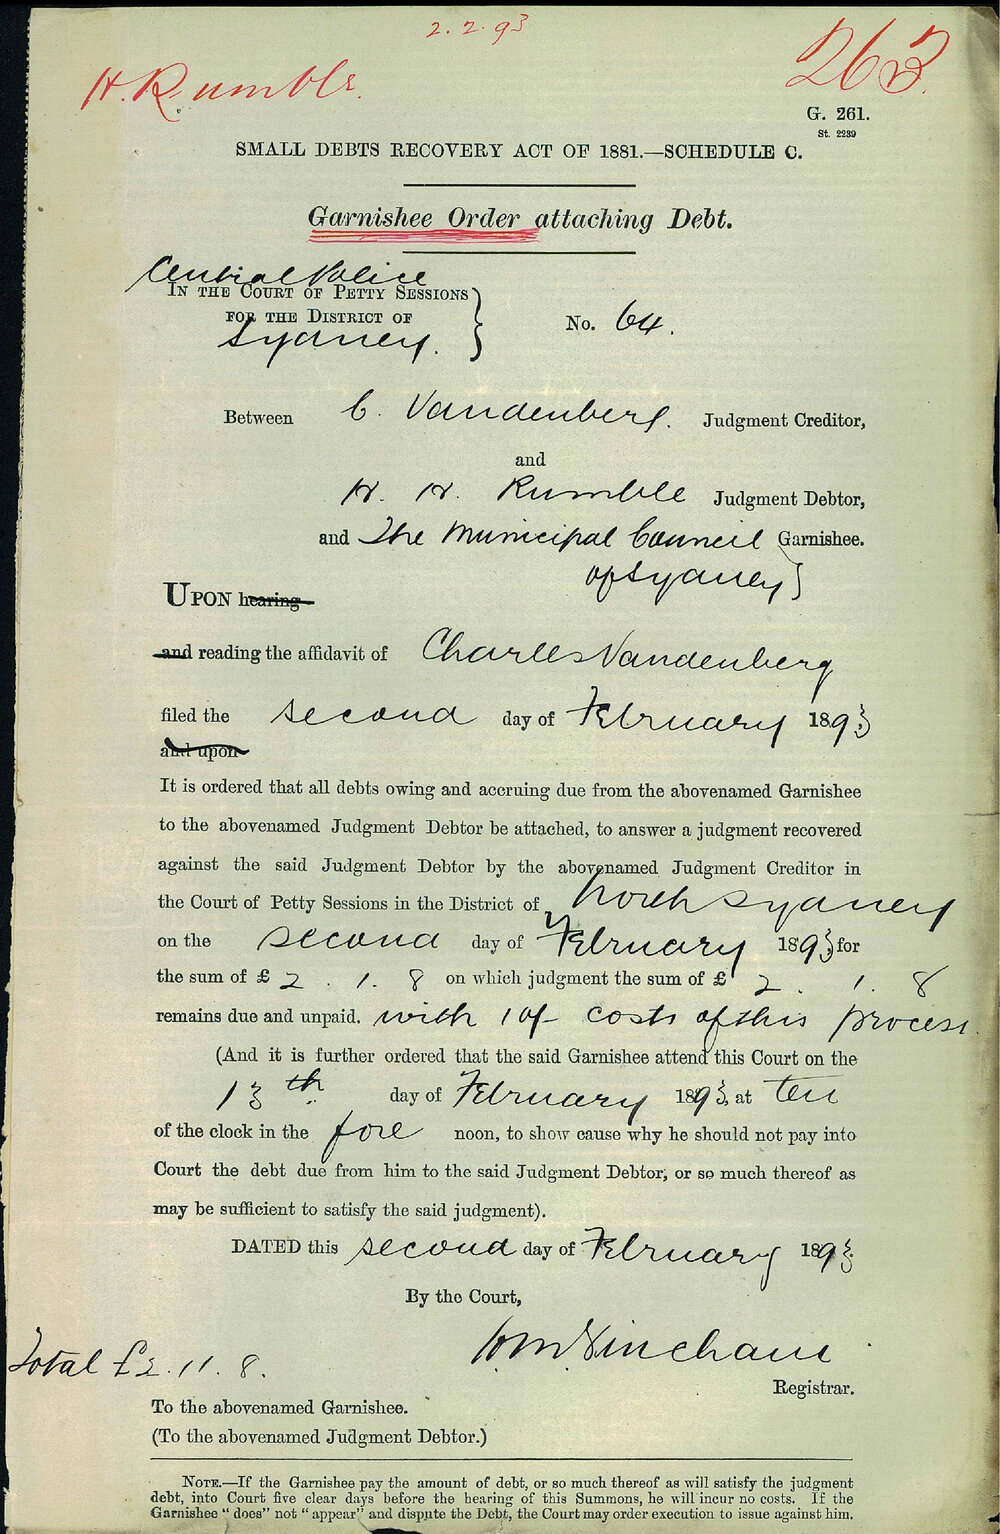 2. 2. 93
H. Rumble.
263
G. 261.
St. 2239
SMALL DEBTS RECOVERY ACT OF 1881.—SCHEDULE C.
Garnishee Order attaching Debt.
Central Police
IN THE COURT OF PETTY SESSIONS
FOR THE DISTRICT OF
Sydney.
No. 64.
Between C. Vandenberg. Judgment Creditor,
and
H. H. Rumble Judgment Debtor,
and The Municipal Council Garnishee.
of Sydney
UPON hearing
and reading the affidavit of Charles Vandenberg
filed the second day of February 1893
and upon
It is ordered that all debts owing and accruing due from the abovenamed Garnishee
to the abovenamed Judgment Debtor be attached, to answer a judgment recovered
against the said Judgment Debtor by the abovenamed Judgment Creditor in
the Court of Petty Sessions in the District of North Sydney
on the second day of February 1893 for
the sum of £ 2 . 1 . 8 on which judgment the sum of £ 2 . 1 . 8
remains due and unpaid. with 10/- costs of this process.
(And it is further ordered that the said Garnishee attend this Court on the
13th day of February 1893, at ten
of the clock in the fore noon, to show cause why he should not pay into
Court the debt due from him to the said Judgment Debtor, or so much thereof as
may be sufficient to satisfy the said judgment).
DATED this second day of February 1893
By the Court,
Total £2. 11. 8.
Registrar.
To the abovenamed Garnishee.
(To the abovenamed Judgment Debtor.)
NOTE.—If the Garnishee pay the amount of debt, or so much thereof as will satisfy the judgment
debt, into Court five clear days before the hearing of this Summons, he will incur no costs. If the
Garnishee "does" not "appear" and dispute the Debt, the Court may order execution to issue against him.